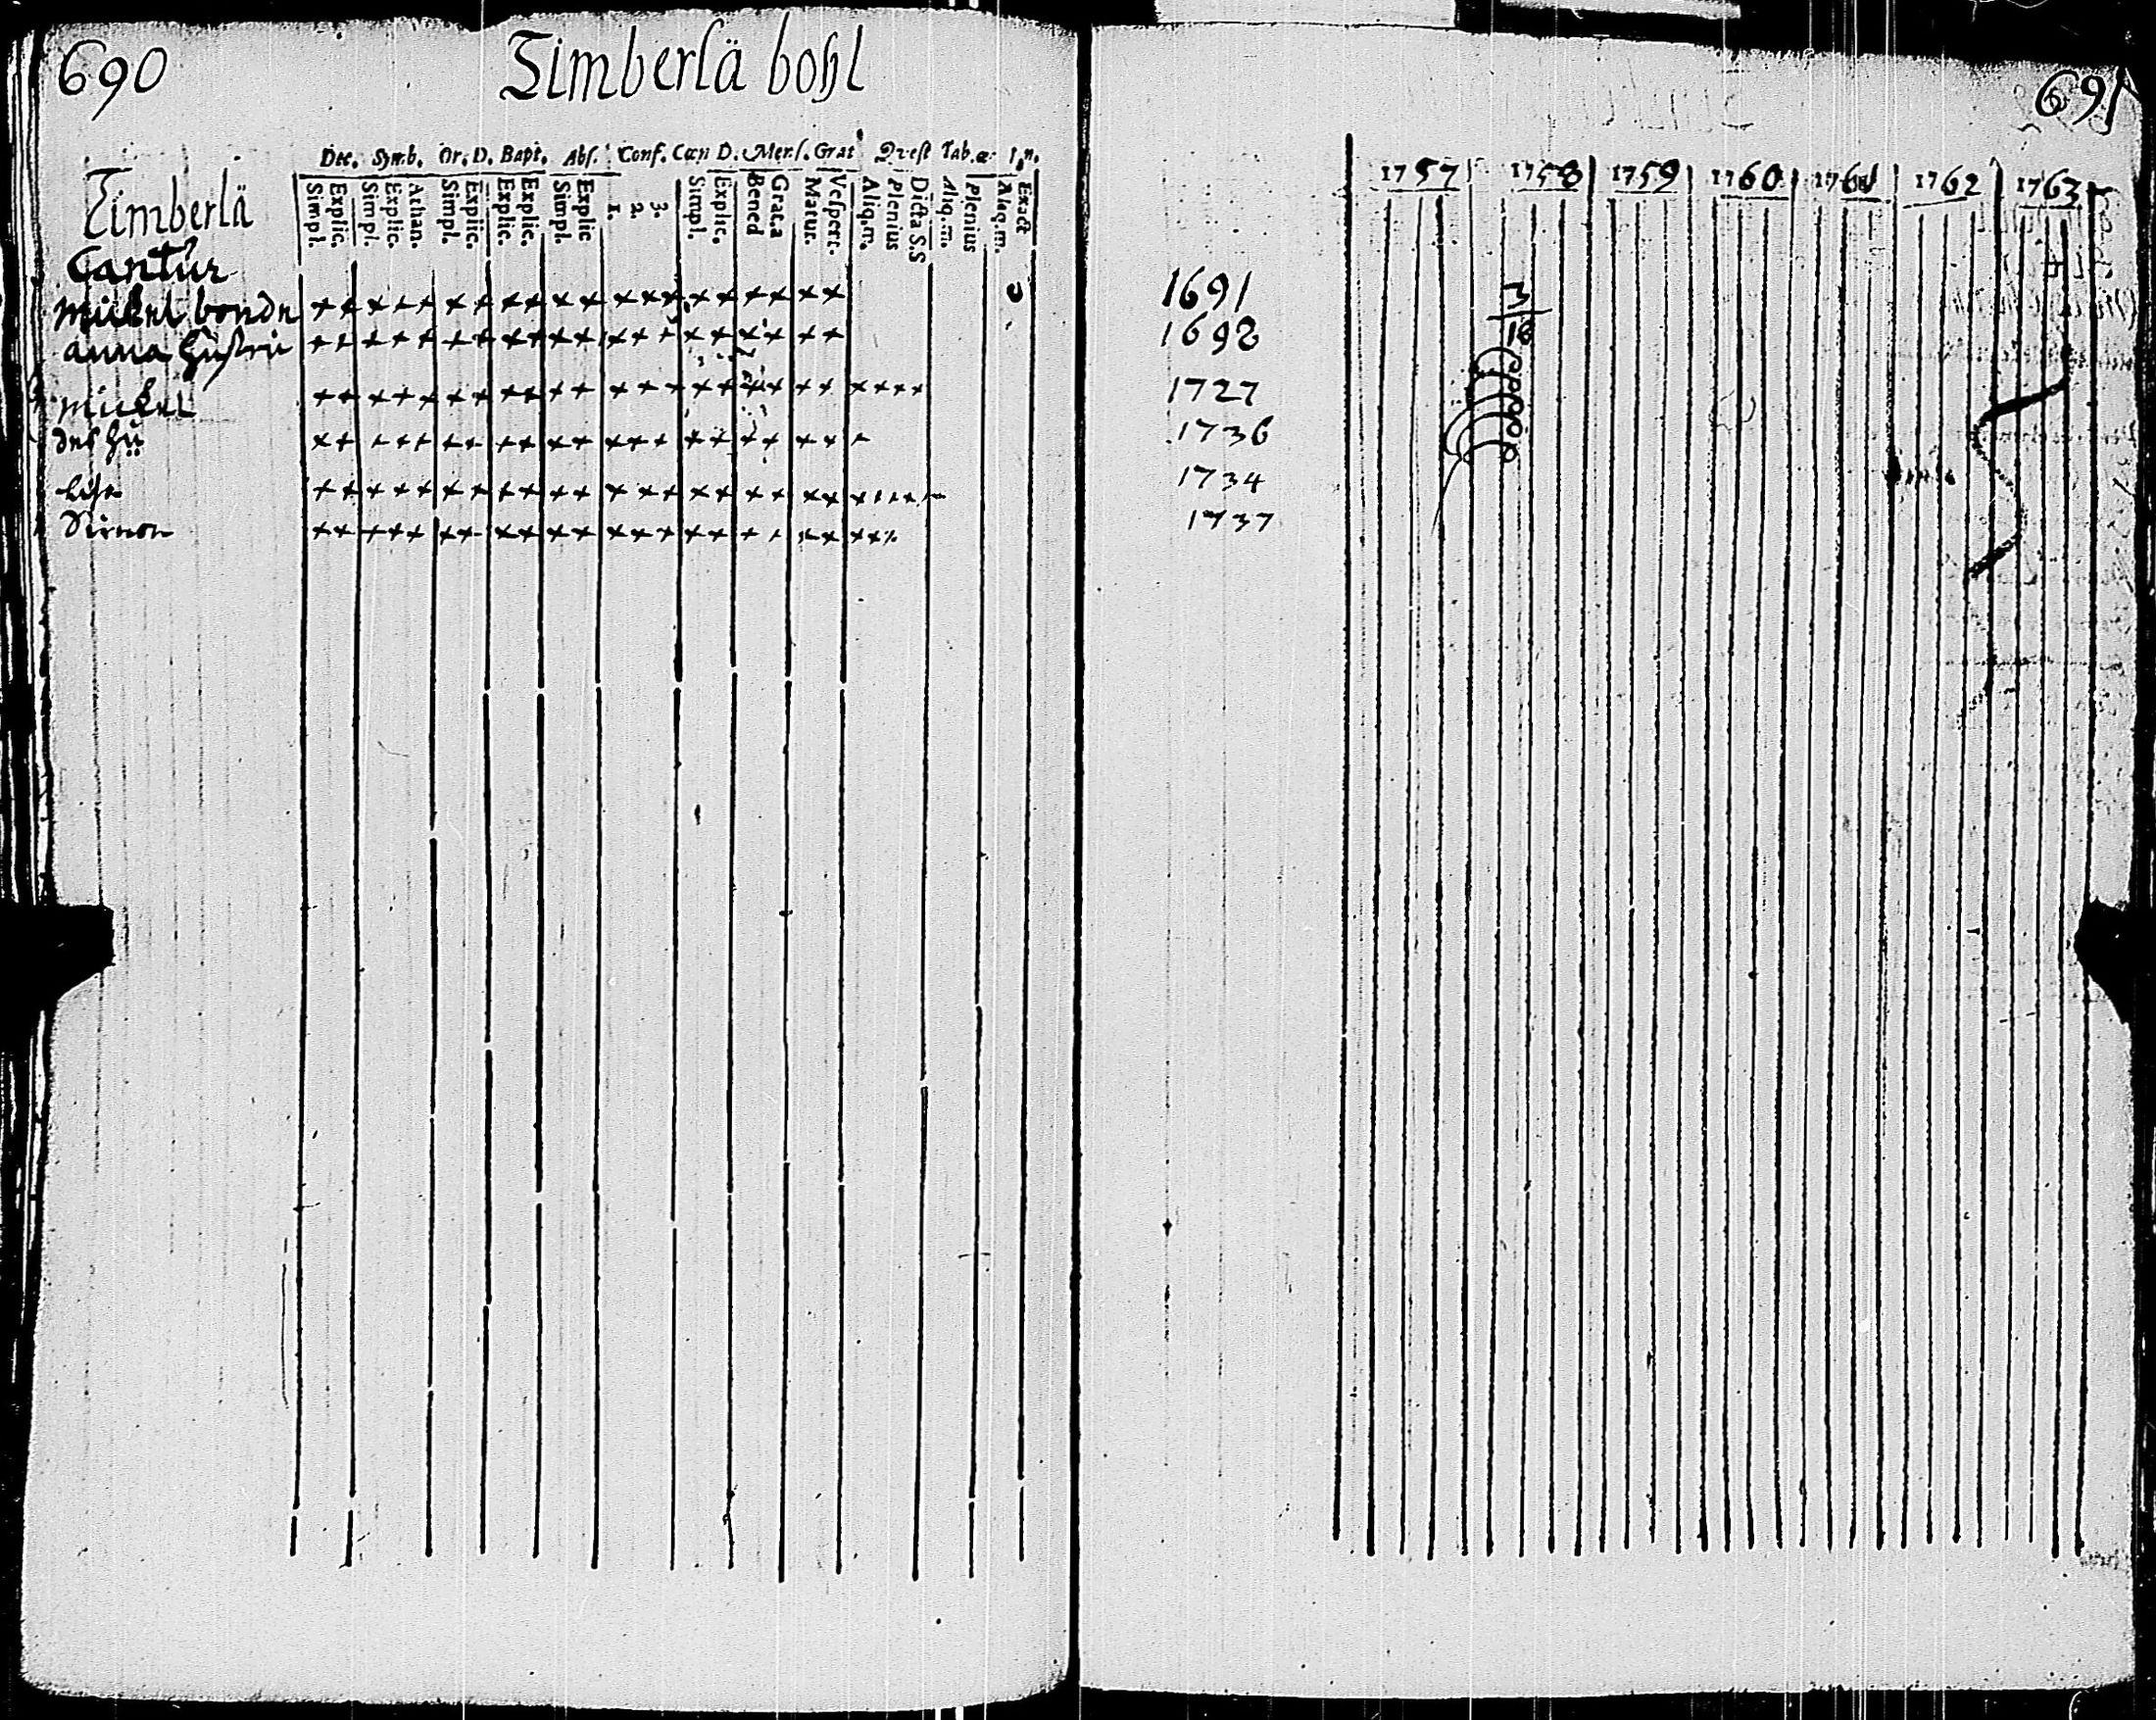 690
Timberlä bohl
Dec. Symb. Or. D. Bapt. Abs. Conf. Cœn D. Mens. Grat Quest Tab. œ.
Simpl. Explic. Simpl. Explic. Athan. Simpl. Explic. Explic. Explic. Simpl. Explic 1. 2. 3. Simpl. Explic. Bened Grat.a Matur. Vespert. Aliq.m. Plenius Dicta S.S Aliq.m. Plenius Aliq.m. Exact
Timberlä
Cantůr
Mickel bonde
anna hůstru
Mickel
des hů
Lisa
Simon
691
1757 1758 1759 1760 1761 1762 1763
1691
1698
1727
1736
1734
1737
3
18